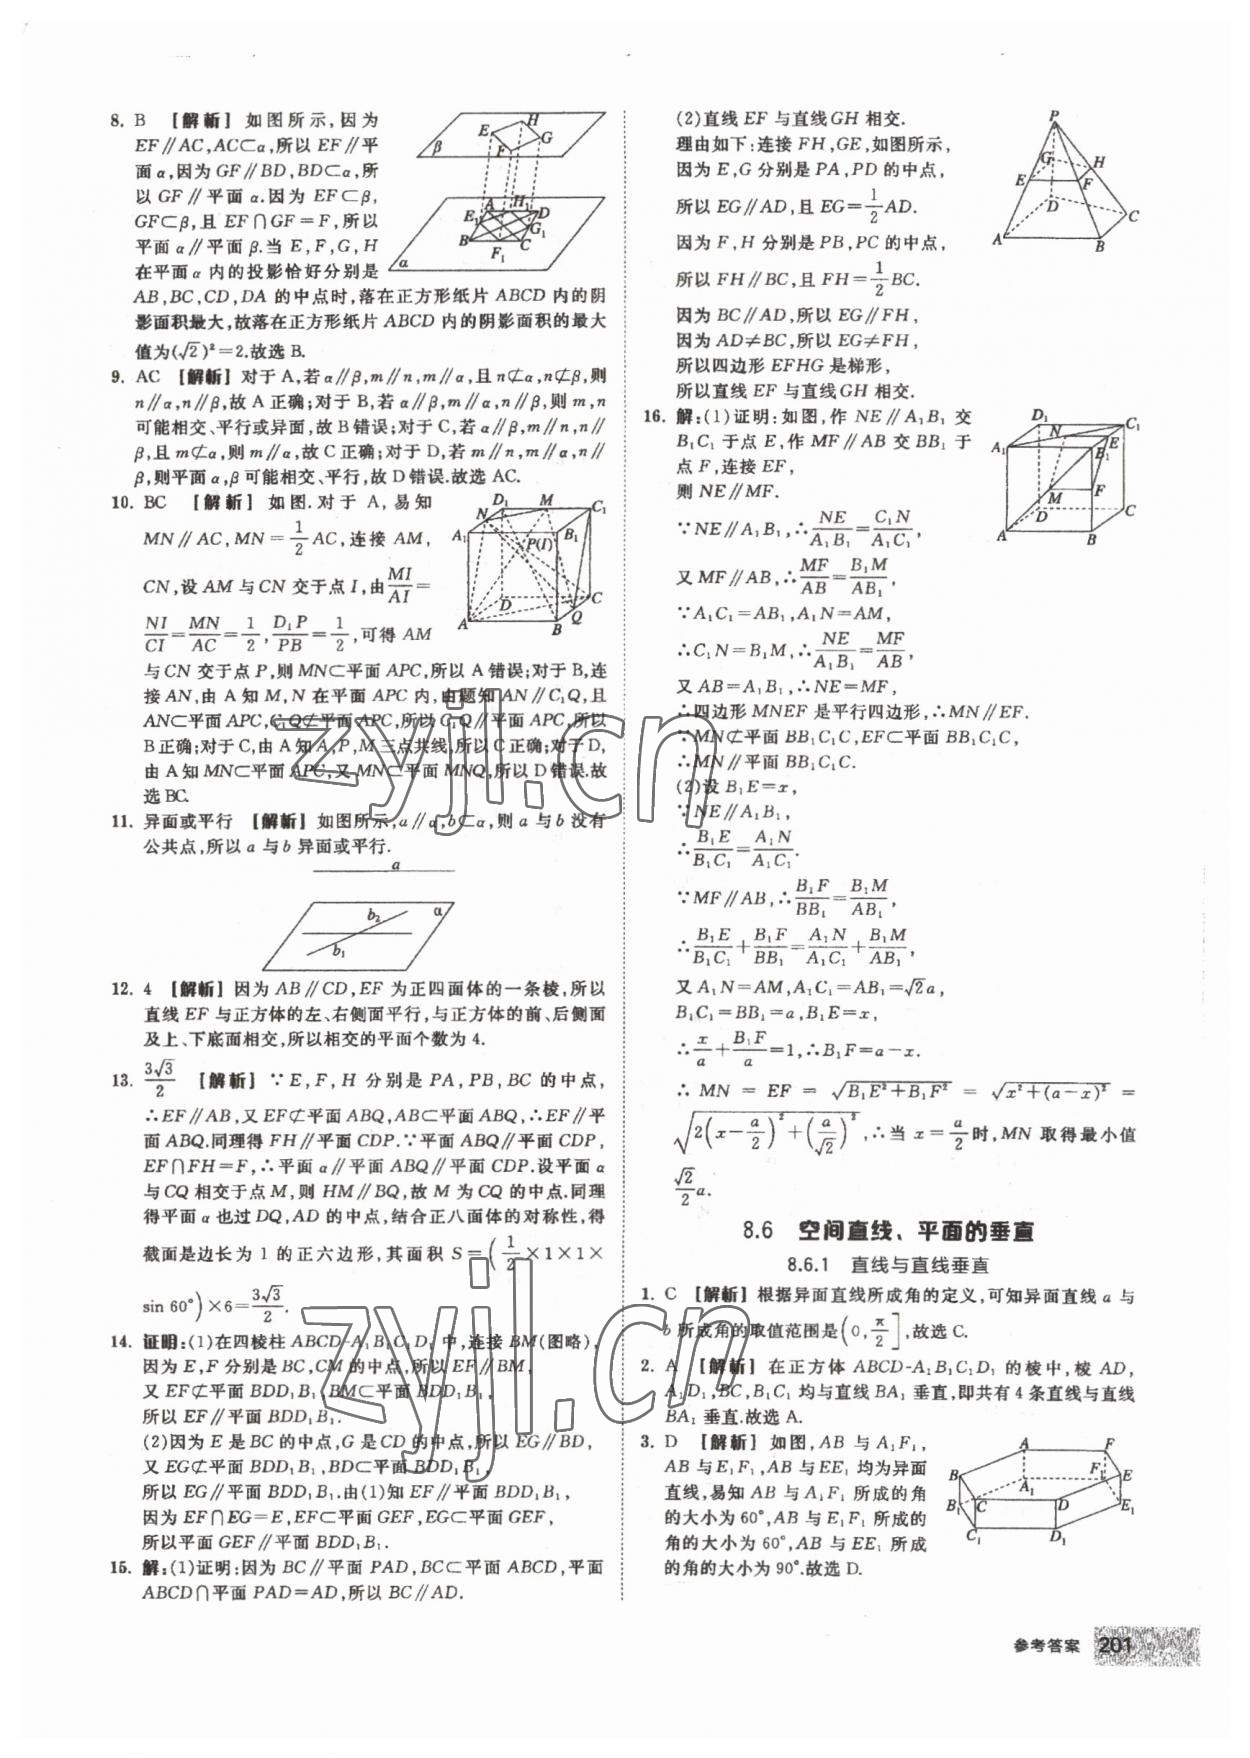 8. B 【解析】如图所示,因为
EF∥AC,AC⊂α,所以EF∥平
面α,因为GF∥BD,BD⊂α,所
以GF∥平面α.因为EF⊂β,
GF⊂β,且EF∩GF=F,所以
平面α∥平面β.当E,F,G,H
在平面α内的投影恰好分别是
AB,BC,CD,DA的中点时,落在正方形纸片ABCD内的阴
影面积最大,故落在正方形纸片ABCD内的阴影面积的最大
值为(√2)²=2.故选B.
9. AC 【解析】对于A,若α∥β,m∥n,m∥α,且n⊄α,n⊄β,则
n∥α,n∥β,故A正确;对于B,若α∥β,m∥α,n∥β,则m,n
可能相交、平行或异面,故B错误;对于C,若α∥β,m∥n,n∥
β,且m⊄α,则m∥α,故C正确;对于D,若m∥n,m∥α,n∥
β,则平面α,β可能相交、平行,故D错误.故选AC.
10. BC 【解析】如图.对于A,易知
MN∥AC,MN=1/2AC,连接AM,
CN,设AM与CN交于点I,由MI/AI=
NI/CI=MN/AC=1/2,D₁P/PB=1/2,可得AM
与CN交于点P,则MN⊂平面APC,所以A错误;对于B,连
接AN,由A知M,N在平面APC内,由题知AN∥C₁Q,且
AN⊂平面APC,C₁Q⊄平面APC,所以C₁Q∥平面APC,所以
B正确;对于C,由A知A,P,M三点共线,所以C正确;对于D,
由A知MN⊂平面APC,又MN⊂平面MNQ,所以D错误.故
选BC.
11. 异面或平行 【解析】如图所示,a∥α,b⊂α,则a与b没有
公共点,所以a与b异面或平行.
12. 4 【解析】因为AB∥CD,EF为正四面体的一条棱,所以
直线EF与正方体的左、右侧面平行,与正方体的前、后侧面
及上、下底面相交,所以相交的平面个数为4.
13. 3√3/2 【解析】∵E,F,H分别是PA,PB,BC的中点,
∴EF∥AB,又EF⊄平面ABQ,AB⊂平面ABQ,∴EF∥平
面ABQ.同理得FH∥平面CDP.∵平面ABQ∥平面CDP,
EF∩FH=F,∴平面α∥平面ABQ∥平面CDP.设平面α
与CQ相交于点M,则HM∥BQ,故M为CQ的中点.同理
得平面α也过DQ,AD的中点,结合正八面体的对称性,得
截面是边长为1的正六边形,其面积S=(1/2×1×1×
sin 60°)×6=3√3/2.
14. 证明:(1)在四棱柱ABCD-A₁B₁C₁D₁中,连接BM(图略),
因为E,F分别是BC,CM的中点,所以EF∥BM,
又EF⊄平面BDD₁B₁,BM⊂平面BDD₁B₁,
所以EF∥平面BDD₁B₁.
(2)因为E是BC的中点,G是CD的中点,所以EG∥BD,
又EG⊄平面BDD₁B₁,BD⊂平面BDD₁B₁,
所以EG∥平面BDD₁B₁.由(1)知EF∥平面BDD₁B₁,
因为EF∩EG=E,EF⊂平面GEF,EG⊂平面GEF,
所以平面GEF∥平面BDD₁B₁.
15. 解:(1)证明:因为BC∥平面PAD,BC⊂平面ABCD,平面
ABCD∩平面PAD=AD,所以BC∥AD.
(2)直线EF与直线GH相交.
理由如下:连接FH,GE,如图所示,
因为E,G分别是PA,PD的中点,
所以EG∥AD,且EG=1/2AD.
因为F,H分别是PB,PC的中点,
所以FH∥BC,且FH=1/2BC.
因为BC∥AD,所以EG∥FH,
因为AD≠BC,所以EG≠FH,
所以四边形EFHG是梯形,
所以直线EF与直线GH相交.
16. 解:(1)证明:如图,作NE∥A₁B₁交
B₁C₁于点E,作MF∥AB交BB₁于
点F,连接EF,
则NE∥MF.
∵NE∥A₁B₁,∴NE/A₁B₁=C₁N/A₁C₁,
又MF∥AB,∴MF/AB=B₁M/AB₁,
∵A₁C₁=AB₁,A₁N=AM,
∴C₁N=B₁M,∴NE/A₁B₁=MF/AB,
又AB=A₁B₁,∴NE=MF,
∴四边形MNEF是平行四边形,∴MN∥EF.
∵MN⊄平面BB₁C₁C,EF⊂平面BB₁C₁C,
∴MN∥平面BB₁C₁C.
(2)设B₁E=x,
∵NE∥A₁B₁,
∴B₁E/B₁C₁=A₁N/A₁C₁.
∵MF∥AB,∴B₁F/BB₁=B₁M/AB₁,
∴B₁E/B₁C₁+B₁F/BB₁=A₁N/A₁C₁+B₁M/AB₁,
又A₁N=AM,A₁C₁=AB₁=√2a,
B₁C₁=BB₁=a,B₁E=x,
∴x/a+B₁F/a=1,∴B₁F=a-x.
∴MN=EF=√(B₁E²+B₁F²)=√(x²+(a-x)²)=
√(2(x-a/2)²+(a/√2)²),∴当x=a/2时,MN取得最小值
√2/2a.
8.6 空间直线、平面的垂直
8.6.1 直线与直线垂直
1. C 【解析】根据异面直线所成角的定义,可知异面直线a与
b所成角的取值范围是(0,π/2],故选C.
2. A 【解析】在正方体ABCD-A₁B₁C₁D₁的棱中,棱AD,
A₁D₁,BC,B₁C₁均与直线BA₁垂直,即共有4条直线与直线
BA₁垂直.故选A.
3. D 【解析】如图,AB与A₁F₁,
AB与E₁F₁,AB与EE₁均为异面
直线,易知AB与A₁F₁所成的角
的大小为60°,AB与E₁F₁所成的
角的大小为60°,AB与EE₁所成
的角的大小为90°.故选D.
参考答案 201
zyjl.cn
zyjl.cn